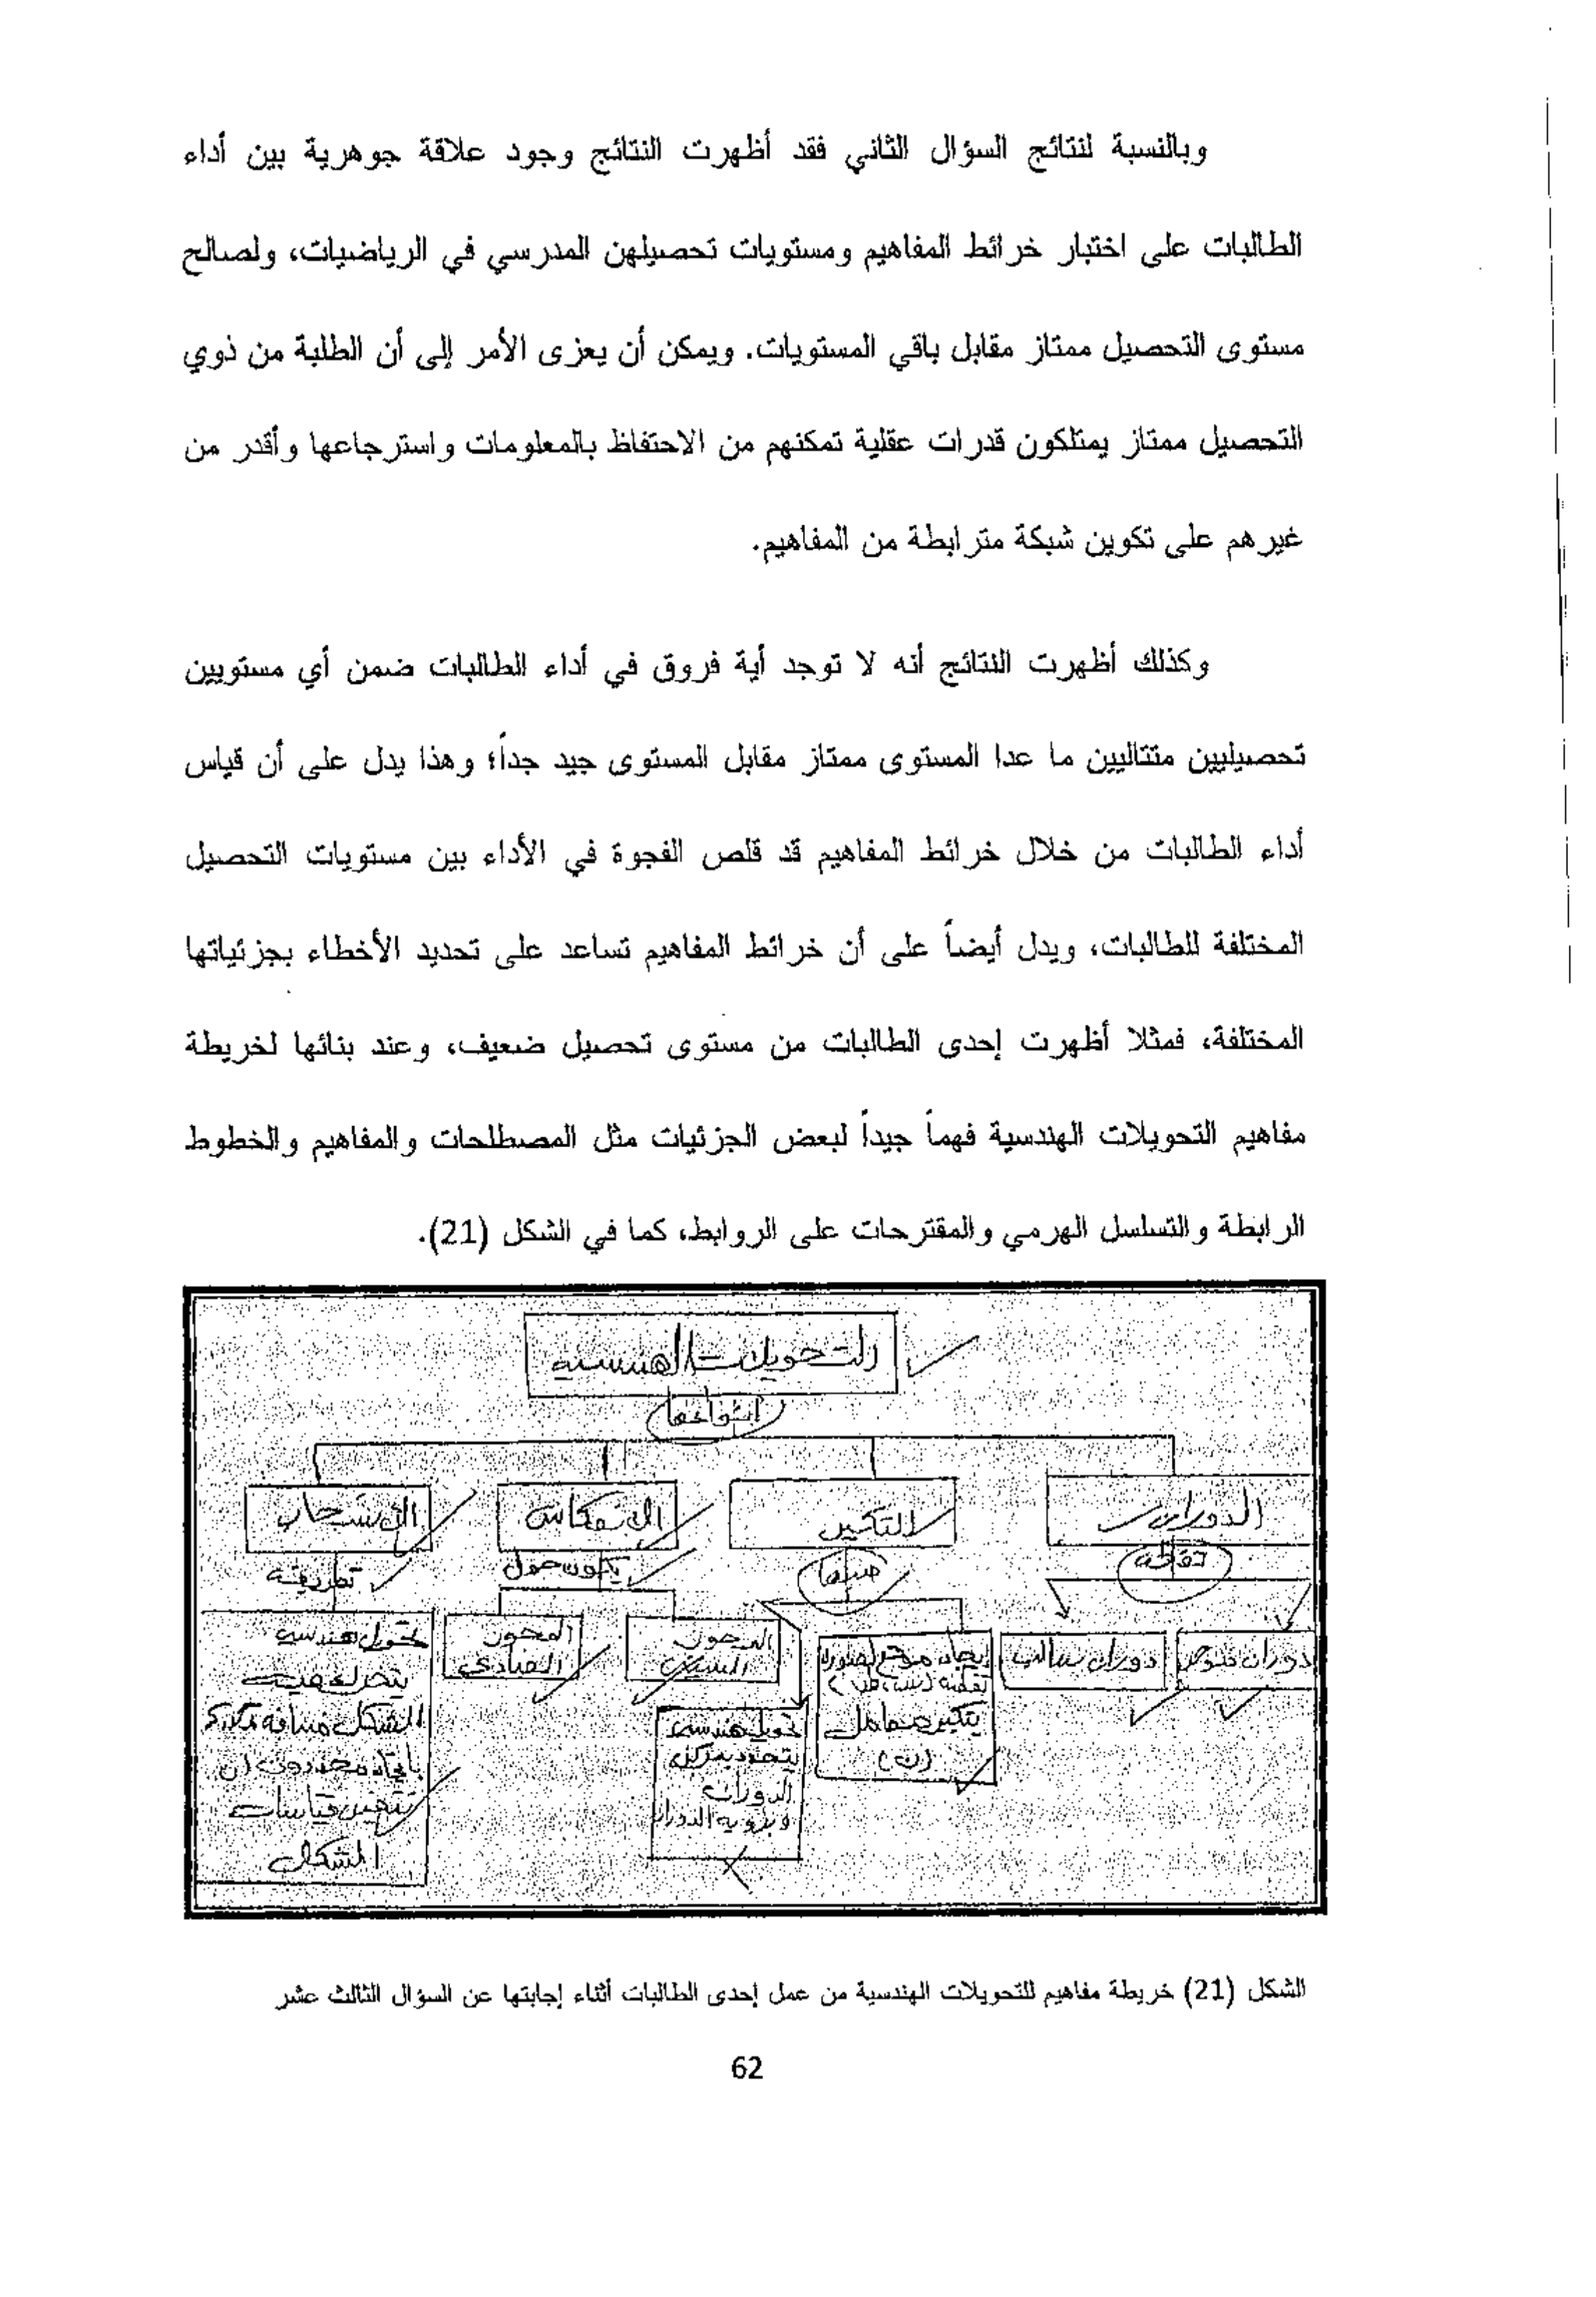 وبالنسبة لنتائج السؤال الثاني فقد أظهرت النتائج وجود علاقة جوهرية بين أداء
الطالبات على اختبار خرائط المفاهيم ومستويات تحصيلهن المدرسي في الرياضيات، ولصالح
مستوى التحصيل ممتاز مقابل باقي المستويات. ويمكن أن يعزى الأمر إلى أن الطلبة من ذوي
التحصيل ممتاز يمتلكون قدرات عقلية تمكنهم من الاحتفاظ بالمعلومات واسترجاعها وأقدر من
غيرهم على تكوين شبكة مترابطة من المفاهيم.
وكذلك أظهرت النتائج أنه لا توجد أية فروق في أداء الطالبات ضمن أي مستويين
تحصيليين متتاليين ما عدا المستوى ممتاز مقابل المستوى جيد جداً؛ وهذا يدل على أن قياس
أداء الطالبات من خلال خرائط المفاهيم قد قلص الفجوة في الأداء بين مستويات التحصيل
المختلفة للطالبات، ويدل أيضاً على أن خرائط المفاهيم تساعد على تحديد الأخطاء بجزئياتها
المختلفة، فمثلا أظهرت إحدى الطالبات من مستوى تحصيل ضعيف، وعند بنائها لخريطة
مفاهيم التحويلات الهندسية فهماً جيداً لبعض الجزئيات مثل المصطلحات والمفاهيم والخطوط
الرابطة والتسلسل الهرمي والمقترحات على الروابط، كما في الشكل (21).
التحويلات الهندسية
أنواعها
الدوران
التكبير
الانعكاس
الانسحاب
يكون حول
تعريفه
دوران موجب
دوران سالب
إيجاد صورة
بتكبير معامله
(ن)
المحور السيني
المحور الصادي
تحويل هندسي
يتحدد بمركز
الدوران
وبزاوية الدوران
تحويل هندسي
يتحرك فيه
الشكل مسافة
باتجاه محدد دون أن
تتغير قياسات
الشكل
الشكل (21) خريطة مفاهيم للتحويلات الهندسية من عمل إحدى الطالبات أثناء إجابتها عن السؤال الثالث عشر
62